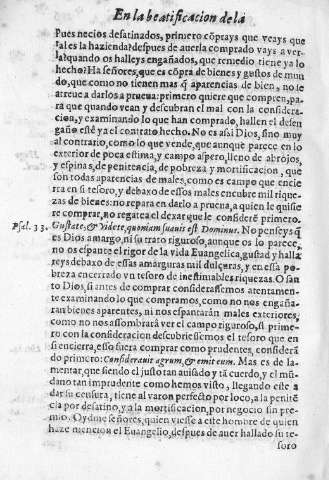 En la beatificacion de la
Pues necios desatinados, primero cõprays que veays que
tal es la hazienda? despues de auerla comprado vays a ver-
la? quando os halleys engañados, que remedio tiene ya lo
hecho? Ha señores, que es cõpra de bienes y gustos de mun
do, que como no tienen mas q̃ aparencias de bien, no te
atreue a darlos a prueua: primero quiere que compren, pa-
ra que quando vean y descubran el mal con la considera-
cion, y examinando lo que han comprado, hallen el desen
gaño esté ya el contrato hecho. No es assi Dios, sino muy
al contrario, como lo que vende, que aunque parece en lo
exterior de poca estima, y campo aspero, lleno de abrojos,
y espinas, de penitencia, de pobreza y mortificacion, que
son todas aparencias de males, como es campo que encie
rra en si tesoro, y debaxo de essos males encubre mil rique-
zas de bienes: no repara en darlo a prueua, a quien le quisie
re comprar, no regatea el dexar que le considerẽ primero.
Psal. 33. Gustate, & videte, quoniam suauis est Dominus. No penseys q̃
es Dios amargo, ni su trato riguroso, aunque os lo parece,
no os espante el rigor de la vida Euangelica, gustad y halla
reys debaxo de essas amarguras mil dulçuras, y en essa po
breza encerrado vn tesoro de inestimables riquezas. O san
to Dios, si antes de comprar considerassemos atentamen-
te examinando lo que compramos, como no nos engaña-
ran bienes aparentes, ni nos espantarán males exteriores,
como no nos assombrará ver el campo riguroso, si prime-
ro con la consideracion descubriessemos el tesoro que en
si encierra, esso fuera comprar como prudentes, considerã
do primero: Considerauit agrum, & emit eum. Mas es de la-
mentar, que siendo el justo tan auisado y tã cuerdo, y el mũ-
dano tan imprudente como hemos visto, llegando este a
dar su censura, tiene al varon perfecto por loco, a la penitẽ
cia por desatino, y a la mortificacion, por negocio sin pre-
mio. Oydme señores, quien viesse a este hombre de quien
haze mencion el Euangelio, despues de auer hallado su te-
soro